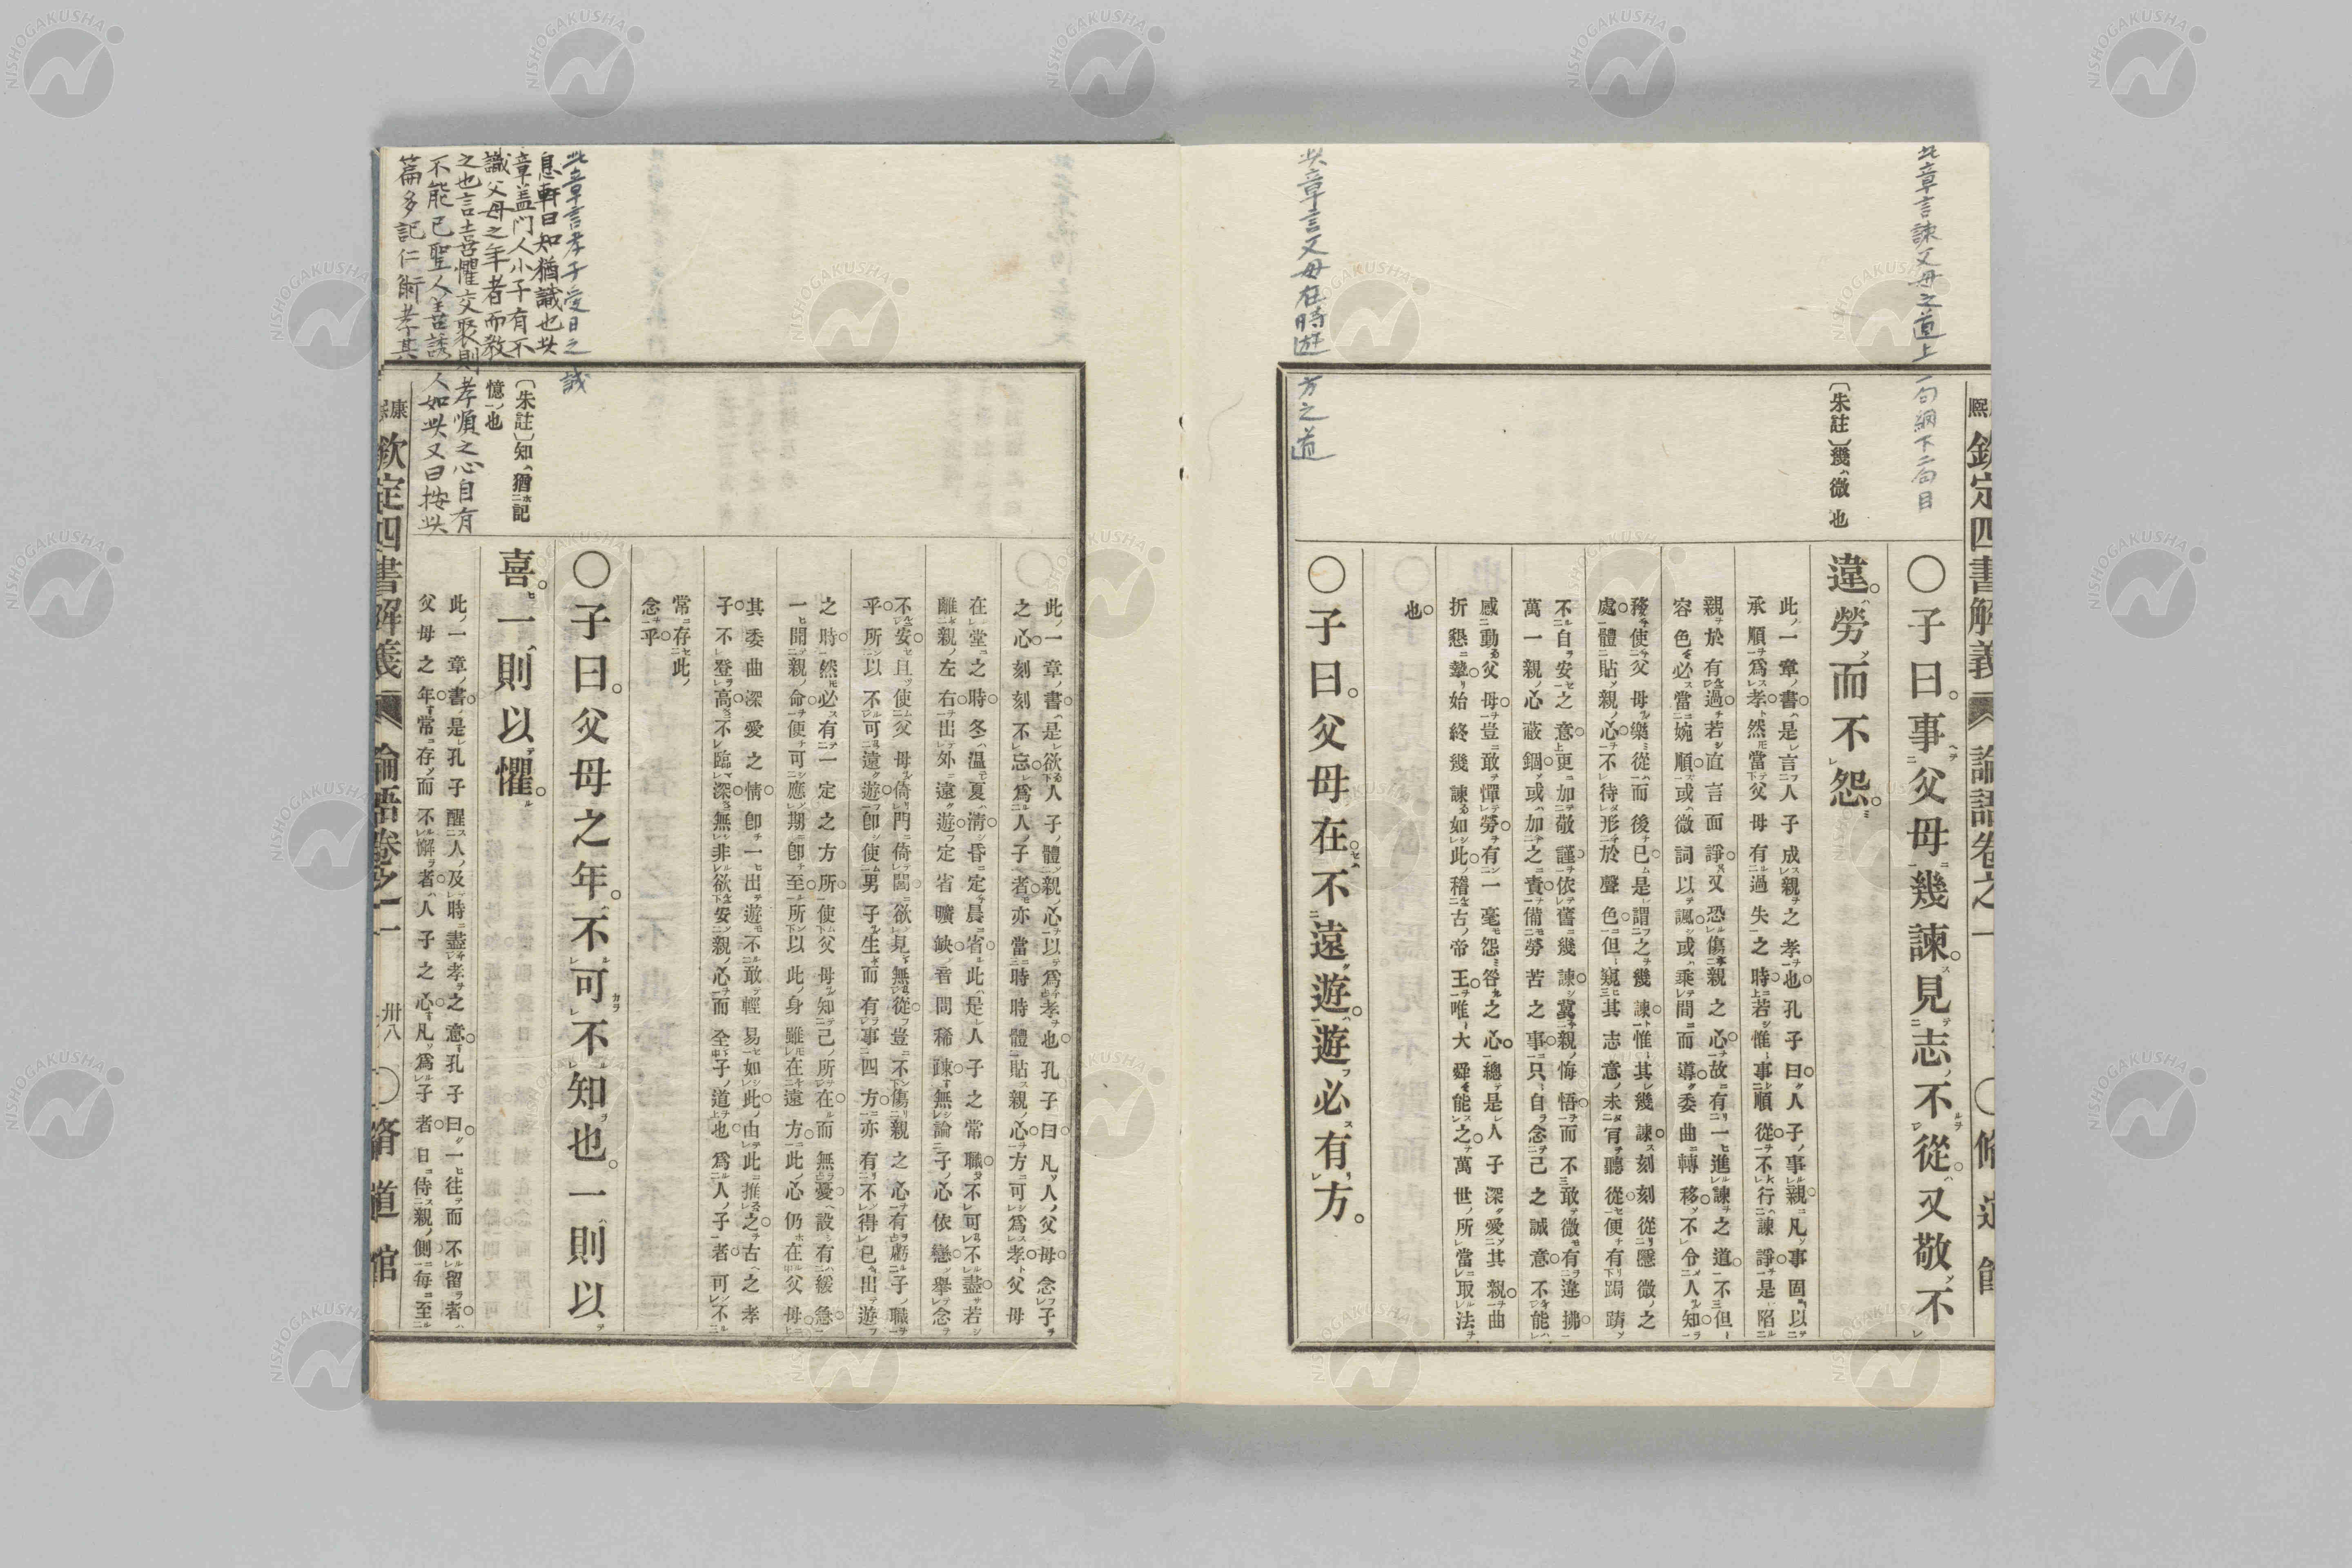 此章言諫父母之道上一句綱下二句目
〔朱註〕幾ハ微也
此章言父母在時遊方之道
〇子曰。事父母幾諫。見志不從。又敬不
違。勞而不怨。
此一章書。是言人子成親之孝也。孔子曰。人子事親。凡事固以
承順爲孝。然當父母有過失之時。若惟事順從。不行諫諍。是陷
親於有過。若直言面諍。又恐傷親之心。故有一進諫之道。不但
容色必當婉順。或微詞以諷。或乘間而導。委曲轉移。不令人知。
務使父母樂從而後已。是謂之幾諫。惟其幾諫。刻刻從隱微之
處。體貼親心。不待形於聲色。但窺其志意。未肯聽從。便有跼蹐
不自安之意。更加敬謹。依舊幾諫。冀親悔悟。而不敢微有違拂。
萬一親心蔽錮。或加之責備勞苦之事。只自念己之誠意。不能
感動父母。豈敢憚勞。有一毫怨咎之心。總是人子深愛其親。曲
折懇摯。始終幾諫如此。稽古帝王。唯大舜能之。萬世所當取法
也。
〇子曰。父母在。不遠遊。遊必有方。
此一章書。是欲人子體親心以爲孝也。孔子曰。凡人父母念子
之心。刻刻不忘。爲人子者。亦當時時體貼親心。方可爲孝。父母
在堂之時。冬溫夏凊。昏定晨省。此是人子之常職。不可不盡。若
離親左右。出外遠遊。定省曠缺。音問稀疎。無論子心依戀。舉念
不安。且使父母倚門倚閭。欲見無從。豈不傷親之心。有虧子職
乎。所以不可遠遊。卽使男子生而有事四方。亦有不得已出遊
之時。然必有一定之方所。使父母知己所在而無憂。設有緩急。
一聞親命。便可應期卽至。所以此身雖在遠方。此心仍在父母。
其委曲深愛之情。卽一出遊不敢輕易如此。由此推之。古之孝
子。不登高。不臨深。無非欲安親心而全子道也。爲人子者。可不
常存此
念乎。
〇子曰。父母之年。不可不知也。一則以
喜。一則以懼。
此一章書。是孔子醒人及時盡孝之意。孔子曰。一往而不留者。
父母之年。常存而不懈者。人子之心。凡爲子者。日侍親側。每至
此章言孝子愛日之誠
息軒曰知猶識也此
章盖門人小子有不
識父母之年者而教
之也言喜懼交聚則孝順之心自有
不能已聖人善誘人如此又曰按此
篇多記仁術孝其
〔朱註〕知ハ猶記
憶也
欽定四書解義 論語卷之一
卅八
〇脩道館